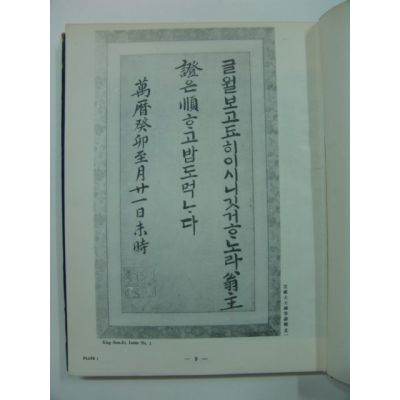 글월보고됴히이시니깃거ᄒᆞ노라翁主
證은順ᄒᆞ고밥도먹ᄂᆞ다
萬曆癸卯至月廿一日未時
King Son-Jo, Letter No. 1
PLATE 1